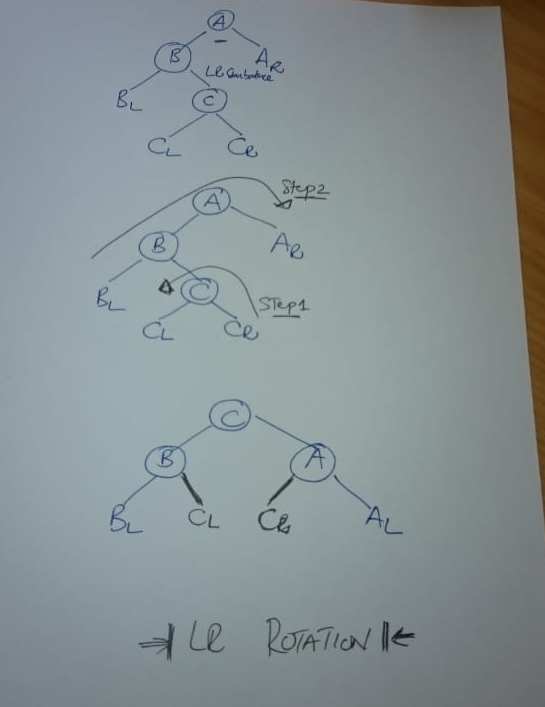 A
B
A_R
LR imbalance
B_L
C
C_L
C_R
Step2
A
B
A_R
B_L
C
Step1
C_L
C_R
C
B
A
B_L
C_L
C_R
A_L
LR ROTATION